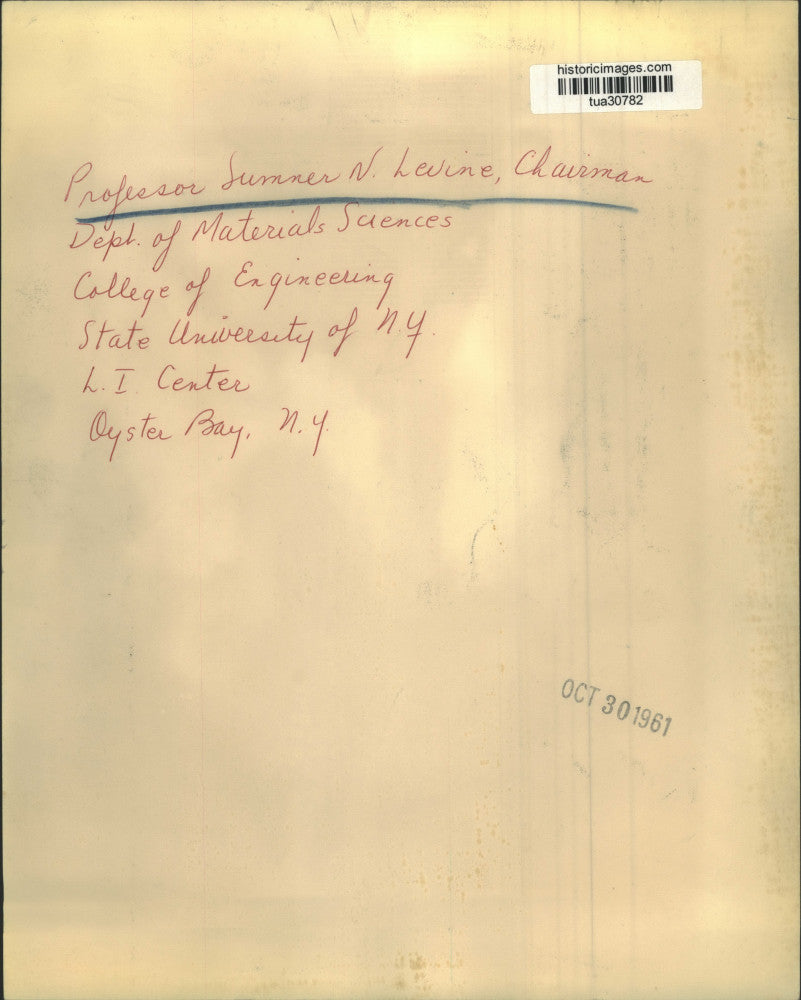 historicimages.com
tua30782
Professor Sumner N. Levine, Chairman
Dept. of Materials Sciences
College of Engineering
State University of N.Y.
L.I. Center
Oyster Bay, N.Y.
OCT 30 1961